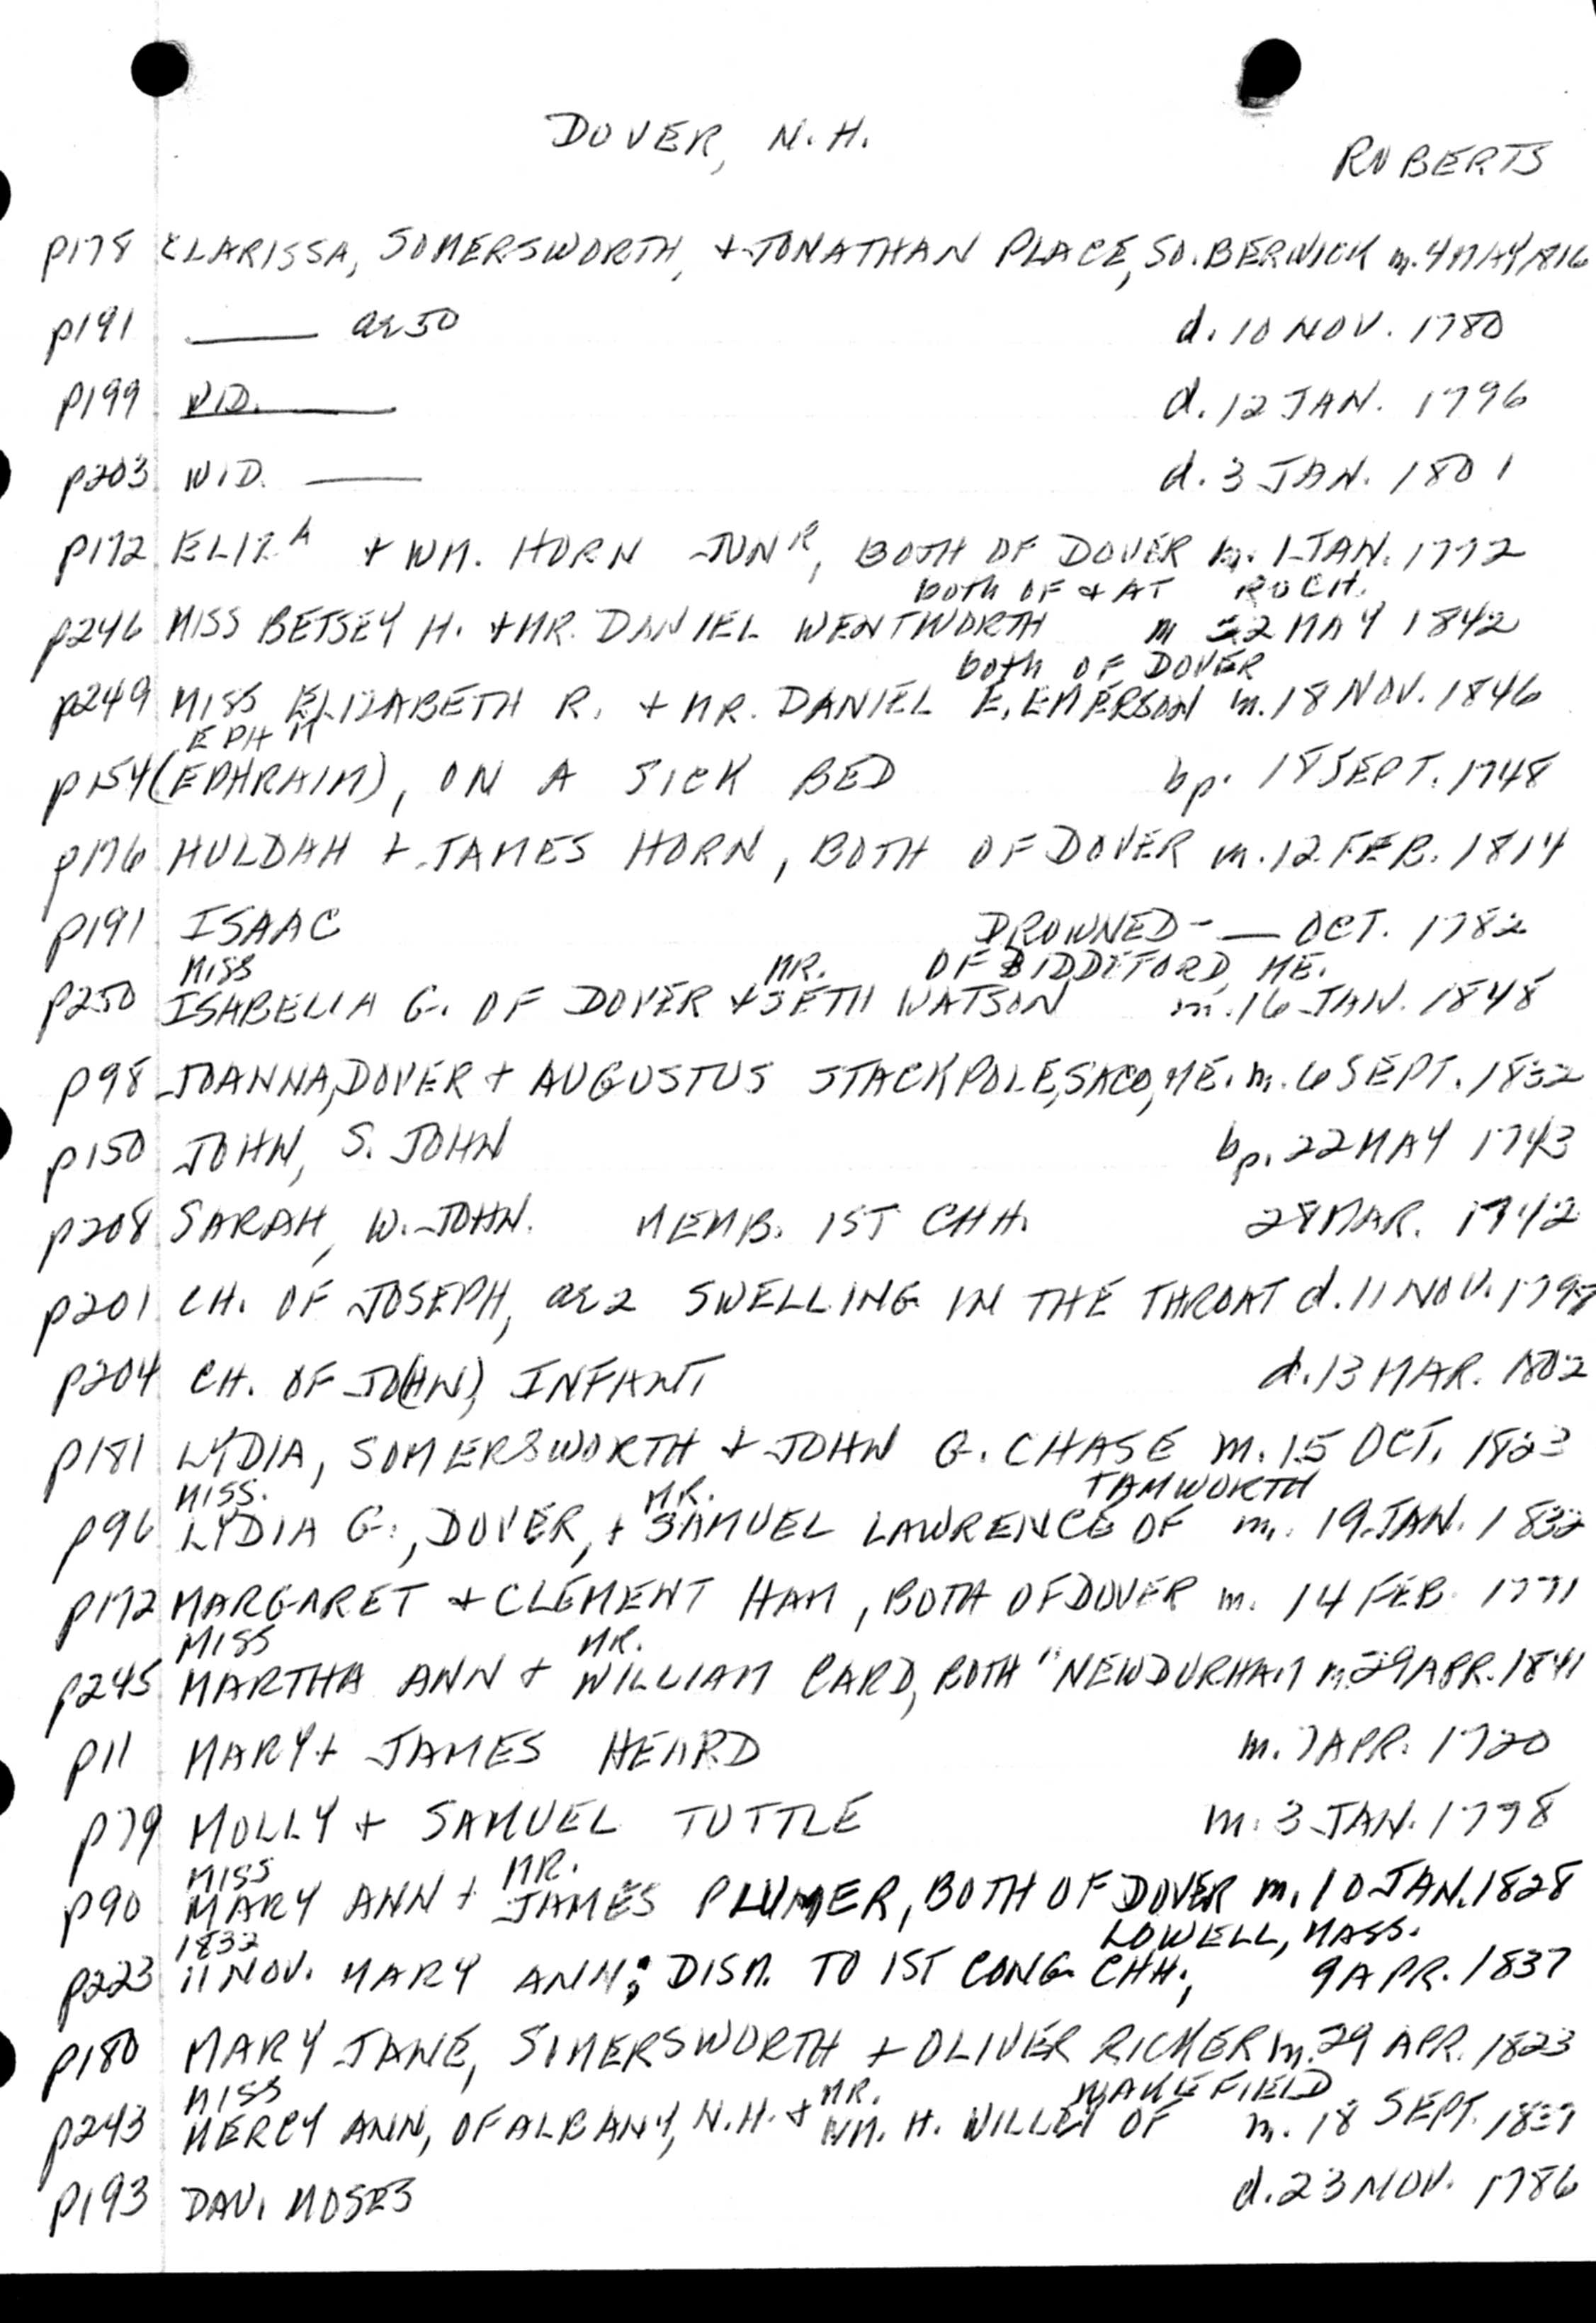 DOVER, N.H.
ROBERTS
p178 CLARISSA, SOMERSWORTH, + JONATHAN PLACE, SO. BERWICK m. 4 MAY 1816
p191 —— ae 50 d. 10 NOV. 1780
p199 WID. —— d. 12 JAN. 1796
p203 WID. —— d. 3 JAN. 1801
p172 ELIZA + WM. HORN JUNR, BOTH OF DOVER m. 1 JAN. 1772
BOTH OF + AT ROCH.
p246 MISS BETSEY H. + MR. DANIEL WENTWORTH m 22 MAY 1842
BOTH OF DOVER
p249 MISS ELIZABETH R. + MR. DANIEL E. EMERSON m. 18 NOV. 1846
EPHM
p154 (EPHRAIM), ON A SICK BED bp. 18 SEPT. 1748
p176 HULDAH + JAMES HORN, BOTH OF DOVER m. 12 FEB. 1814
p191 ISAAC DROWNED - — OCT. 1782
MISS MR. OF BIDDEFORD, ME.
p250 ISABELLA G. OF DOVER + SETH WATSON m. 16 JAN. 1848
p98 JOANNA, DOVER + AUGUSTUS STACKPOLE, SACO, ME. m. 6 SEPT. 1832
p150 JOHN, S. JOHN bp. 22 MAY 1743
p208 SARAH, W. JOHN. MEMB. 1ST CHH. 28 MAR. 1742
p201 CH. OF JOSEPH, ae 2 SWELLING IN THE THROAT d. 11 NOV.
p204 CH. OF JO(HN), INFANT d. 13 MAR. 1802
p181 LYDIA, SOMERSWORTH + JOHN G. CHASE m. 15 OCT. 1823
MISS. MR. TAMWORTH
p96 LYDIA G., DOVER, + SAMUEL LAWRENCE OF m. 19 JAN. 1832
p172 MARGARET + CLEMENT HAM, BOTH OF DOVER m. 14 FEB. 1771
MISS MR.
p245 MARTHA ANN + WILLIAM CARD, BOTH " NEW DURHAM m. 29 APR. 1841
p11 MARY + JAMES HEARD m. 7 APR. 1720
p79 MOLLY + SAMUEL TUTTLE m. 3 JAN. 1798
MISS MR.
p90 MARY ANN + JAMES PLUMER, BOTH OF DOVER m. 10 JAN. 1828
1832 LOWELL, MASS.
p223 11 NOV. MARY ANN; DISM. TO 1ST CONG. CHH., 9 APR. 1837
p180 MARY JANE, SOMERSWORTH + OLIVER RICKER m. 29 APR. 1823
MISS MR. WAKEFIELD
p243 MERCY ANN, OF ALBANY, N.H. + WM. H. WILLEY OF m. 18 SEPT. 1837
p193 DAV. MOSES d. 23 NOV. 1786